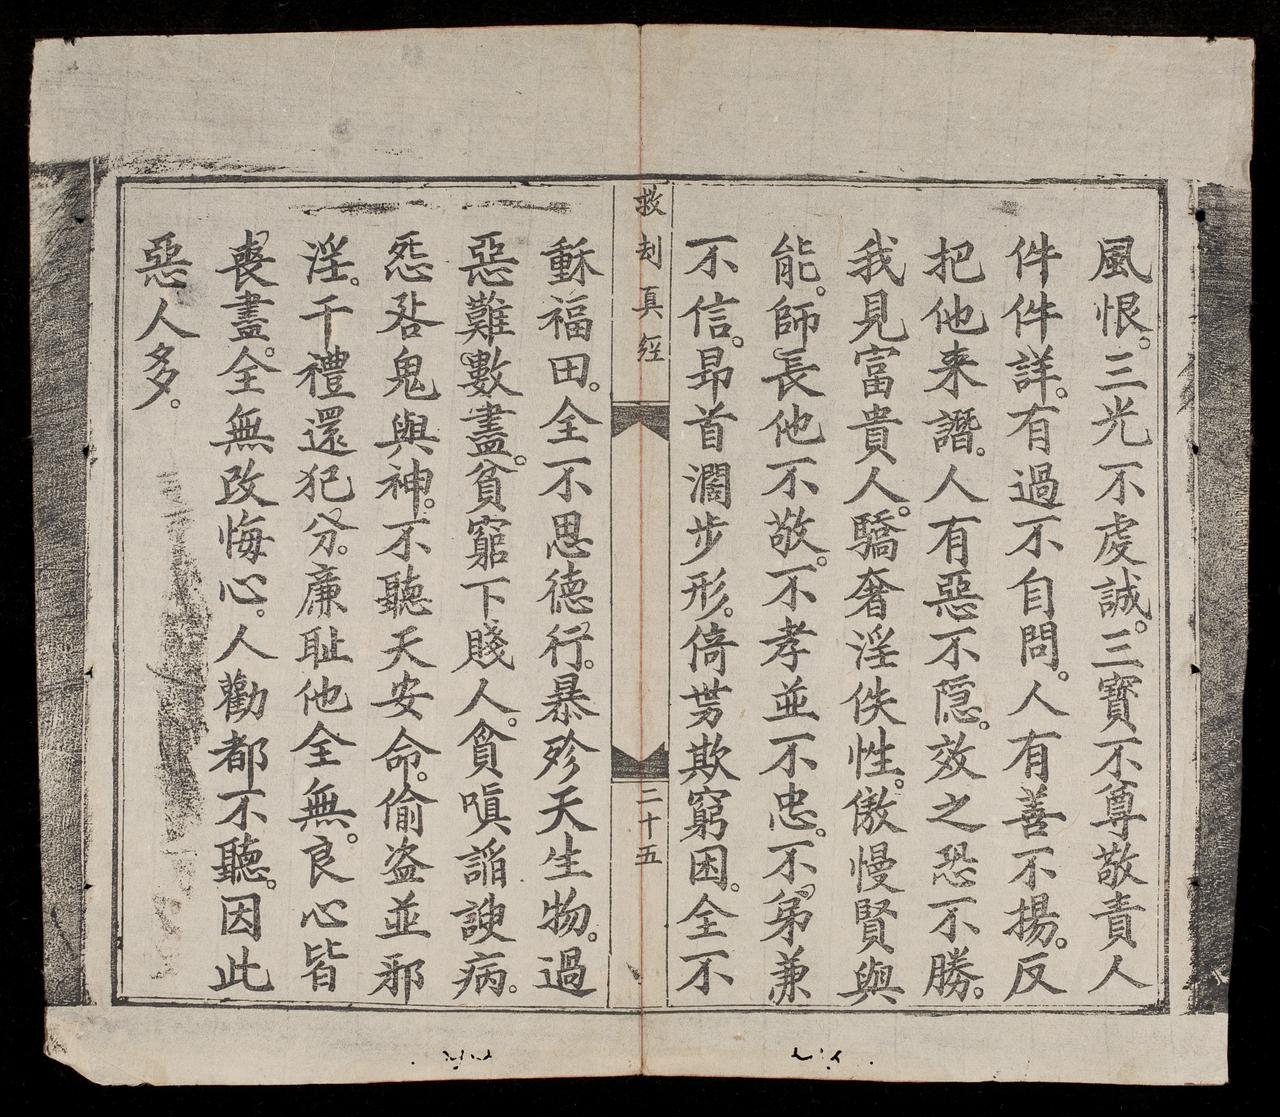 風恨。三光不虔誠。三寶不尊敬責人
件件詳。有過不自問。人有善不揚。反
把他来譖。人有惡不隐。效之恐不勝。
我見富貴人。驕奢淫佚性。傲慢賢與
能。師長他不敬。不孝並不忠。不弟兼
不信。昻首濶步形。倚势欺窮困。全不
救刦真經
二十五
穌福田。全不思德行。暴殄天生物。過
惡難數盡。貧窮下賤人。貪嗔謟諛病。
怨咎鬼與神。不聽天安命。偷盗並邪
淫。干禮還犯分。廉耻他全無。良心皆
喪盡。全無改悔心。人勸都不聽。因此
惡人多。